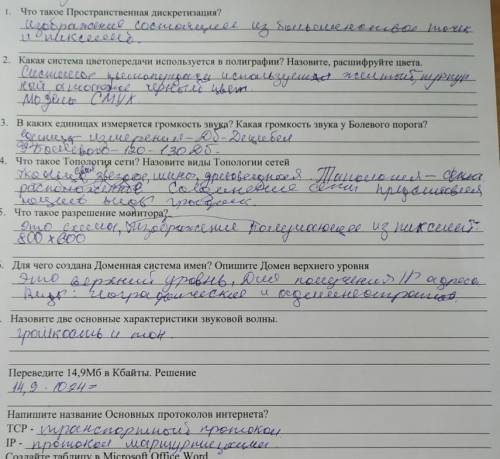 1. Что такое Пространственная дискретизация?
изображение состоящее из
точек
и пикселей.
2. Какая система цветопередачи используется в полиграфии? Назовите, расшифруйте цвета.
Система цветопередачи используется жёлтый, пурпур
ный а
чёрный цвет.
Модель СМУК
3. В каких единицах измеряется громкость звука? Какая громкость звука у Болевого порога?
единица измерения – Дб - Децибел
Болевого - 120 - 130 Дб.
4. Что такое Топология сети? Назовите виды Топологии сетей
звезда, шина, древовидная. Топология – схема
расположения соединение сети
5. Что такое разрешение монитора?
Это
, изображение
из пикселей.
800 х 600
Для чего создана Доменная система имен? Опишите Домен верхнего уровня
Это верхний уровень, Для получения IP адреса
Виды:
и
Назовите две основные характеристики звуковой волны.
громкость и тон.
Переведите 14,9Мб в Кбайты. Решение
14,9 · 1024 =
Напишите название Основных протоколов интернета?
TCP - транспортный протокол
IP - протокол маршрутизации
Создайте таблицу в Microsoft Office Word